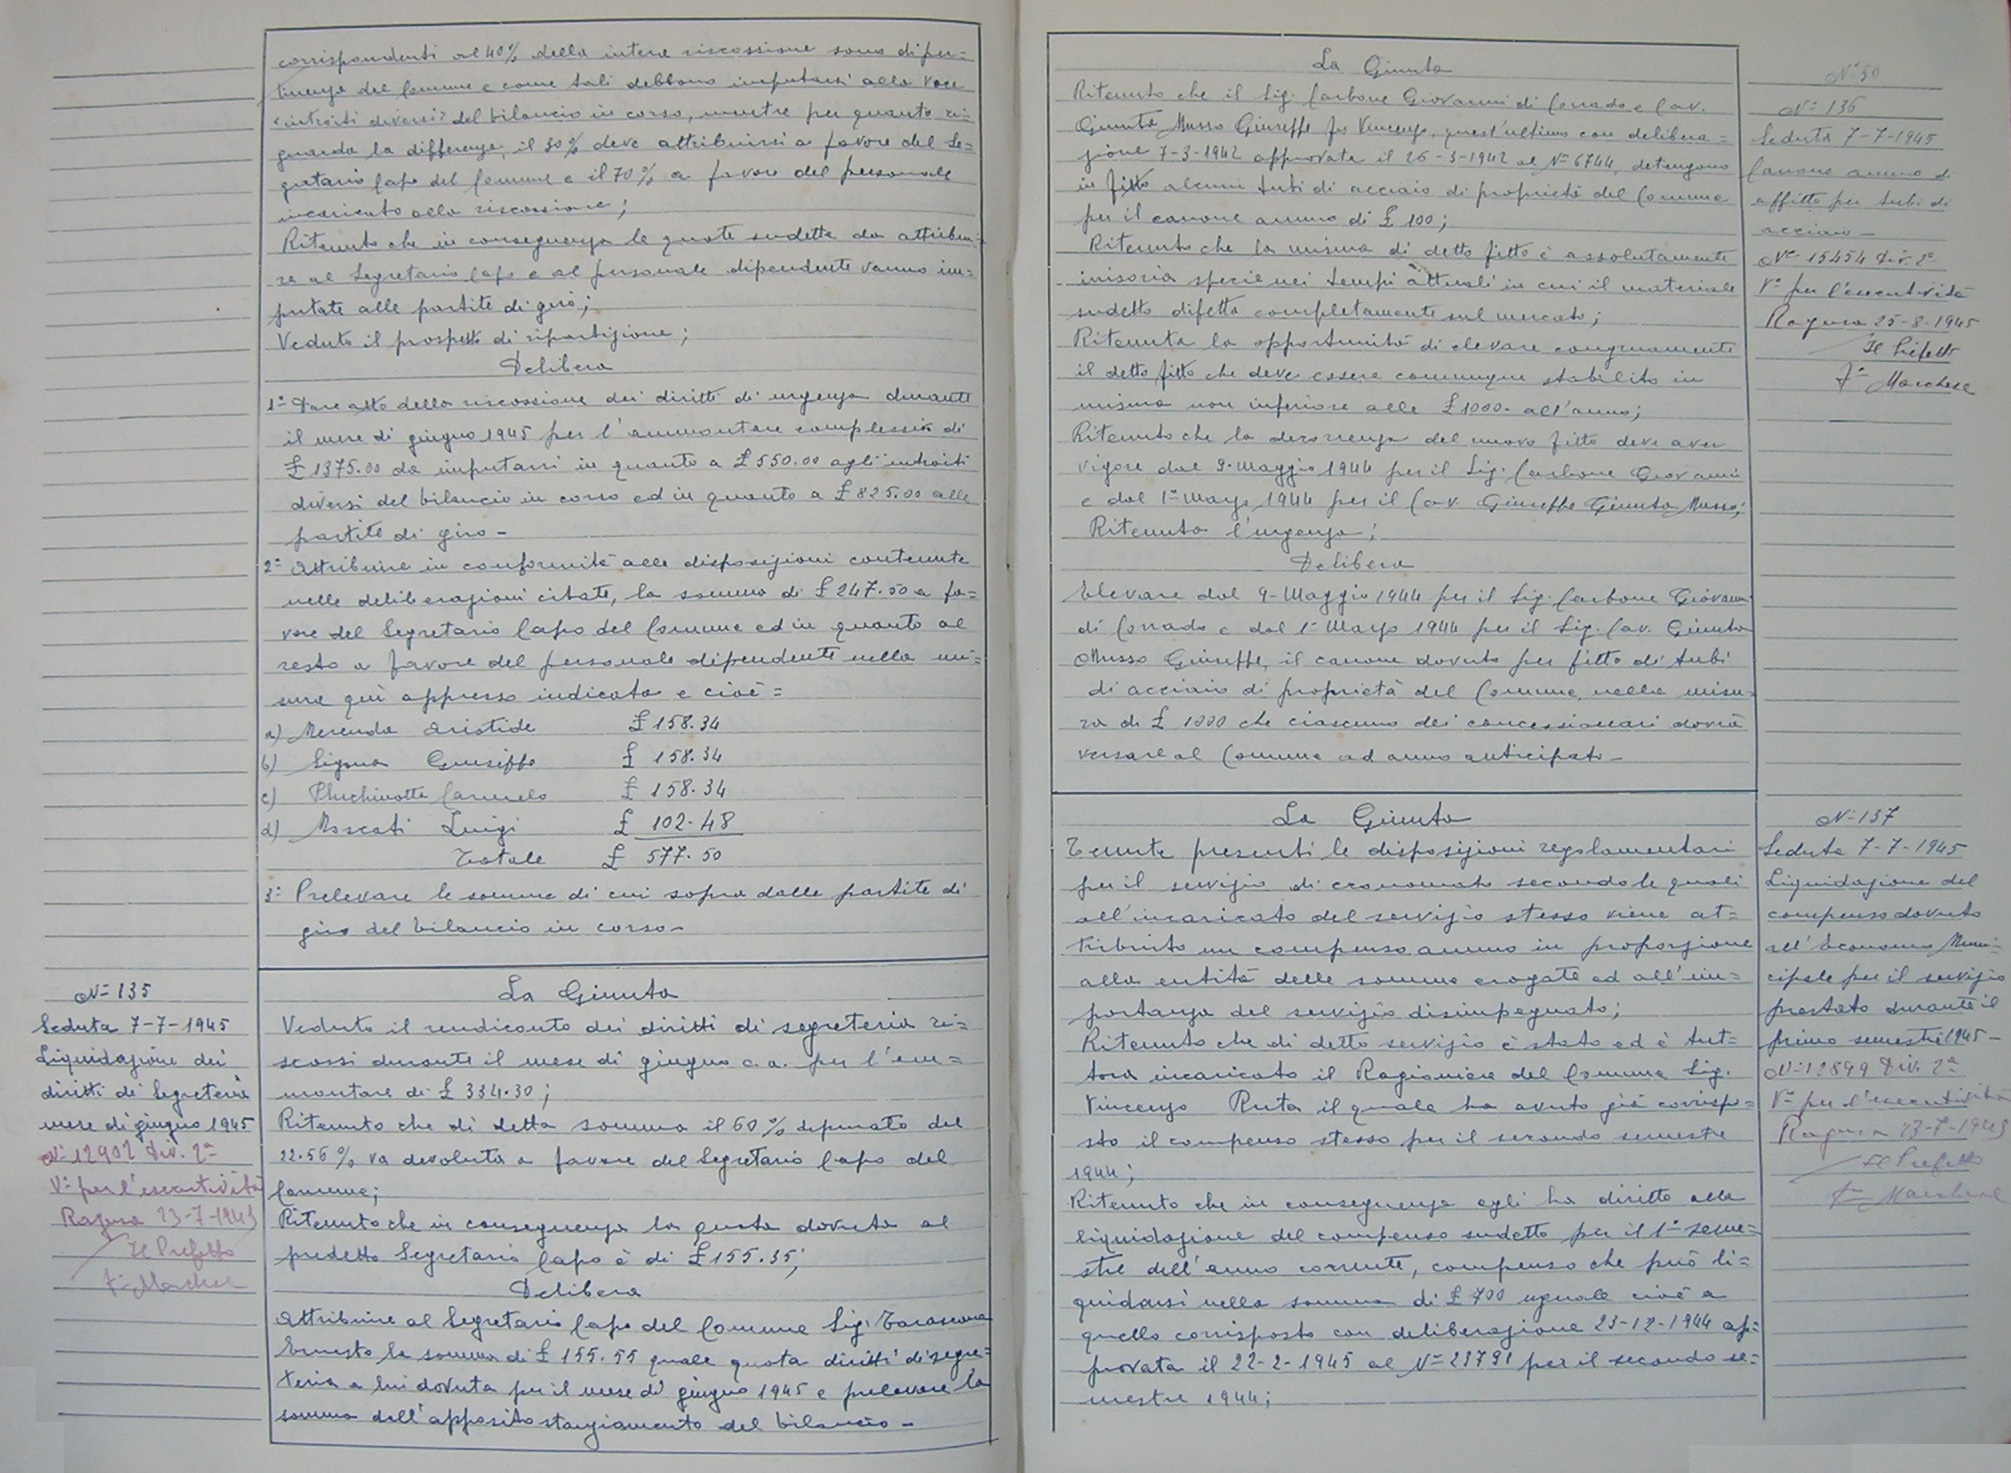 corrispondenti al 40% della intera riscossione sono di per=
tinenza del Comune e come tali debbono imputarsi alla voce
"introiti diversi" del bilancio in corso, mentre per quanto ri=
guarda la differenza, il 30% deve attribuirsi a favore del Se=
gretario Capo del Comune e il 70% a favore del personale
incaricato alla riscossione;
Ritenuto che in conseguenza le quote sudette da attribui=
re al Segretario Capo e al personale dipendente vanno im=
putate alle partite di giro;
Veduto il prospetto di ripartizione;
Delibera
1° Dare atto della riscossione dei diritti di urgenza durante
il mese di giugno 1945 per l'ammontare complessivo di
£ 1375.00 da imputarsi in quanto a £ 550.00 agli introiti
diversi del bilancio in corso ed in quanto a £ 825.00 alle
partite di giro -
2° Attribuire in conformità alle disposizioni contenute
nelle deliberazioni citate, la somma di £ 247.50 a fa=
vore del Segretario Capo del Comune ed in quanto al
resto a favore del personale dipendente nella mi=
sura quì appresso indicata e cioè =
a) Merenda Aristide £ 158.34
b) Sigona Giuseppe £ 158.34
c) Pluchinotta Carmelo £ 158.34
d) Moscati Luigi £ 102.48
Totale £ 577.50
3° Prelevare le somme di cui sopra dalle partite di
giro del bilancio in corso -
N° 135
Seduta 7-7-1945
Liquidazione dei
diritti di Segreteria
mese di giugno 1945
N° 12902 Div. 2ª
V° per l'esecutività
Ragusa 23-7-1945
Il Prefetto
F° Marchese
La Giunta
Veduto il rendiconto dei diritti di segreteria ri=
scossi durante il mese di giugno c.a. per l'am=
montare di £ 334.30;
Ritenuto che di detta somma il 60% depurato del
22.56% va devoluta a favore del Segretario Capo del
Comune;
Ritenuto che in conseguenza la quota dovuta al
predetto Segretario Capo è di £ 155.35;
Delibera
Attribuire al Segretario Capo del Comune Sig. Tarascona
Ernesto la somma di £ 155.55 quale quota diritti di segre=
teria a lui dovuta per il mese di giugno 1945 e prelevare la
somma dall'apposito stanziamento del bilancio -
La Giunta
Ritenuto che il Sig. Carbone Giovanni di Corrado e Cav.
Giunta Musso Giuseppe fu Vincenzo, quest'ultimo con delibera=
zione 7-3-1942 approvata il 26-3-1942 al N° 6744, detengono
in fitto alcuni tubi di acciaio di proprietà del Comune
per il canone annuo di £ 100;
Ritenuto che la misura di detto fitto è assolutamente
irrisoria specie nei tempi attuali in cui il materiale
sudetto difetta completamente sul mercato;
Ritenuta la opportunità di elevare congruamente
il detto fitto che deve essere comunque stabilito in
misura non inferiore alle £ 1000- all'anno;
Ritenuto che la decorrenza del nuovo fitto deve aver
vigore dal 9-Maggio 1944 per il Sig. Carbone Giovanni
e dal 1° Marzo 1944 per il Cav. Giuseppe Giunta Musso;
Ritenuta l'urgenza;
Delibera
Elevare dal 9-Maggio 1944 per il Sig. Carbone Giovanni
di Corrado e dal 1° Marzo 1944 per il Sig. Cav. Giunta
Musso Giuseppe, il canone dovuto per fitto di tubi
di acciaio di proprietà del Comune, nella misu=
ra di £ 1000 che ciascuno dei concessionari dovrà
versare al Comune ad anno anticipato -
N° 50
N° 136
Seduta 7-7-1945
Canone annuo di
affitto per tubi di
acciaio -
N° 15454 Div. 2ª
V° per l'esecutività
Ragusa 25-8-1945
Il Prefetto
F° Marchese
La Giunta
Tenute presenti le disposizioni regolamentari
per il servizio di economato secondo le quali
all'incaricato del servizio stesso viene at=
tribuito un compenso annuo in proporzione
alla entità delle somme erogate ed all'im=
portanza del servizio disimpegnato;
Ritenuto che di detto servizio è stato ed è tut=
tora incaricato il Ragioniere del Comune Sig.
Vincenzo Ruta il quale ha avuto già corrispo=
sto il compenso stesso per il secondo semestre
1944;
Ritenuto che in conseguenza egli ha diritto alla
liquidazione del compenso sudetto per il 1° seme=
stre dell'anno corrente, compenso che può li=
quidarsi nella somma di £ 700 uguale cioè a
quello corrisposto con deliberazione 23-12-1944 ap=
provata il 22-2-1945 al N° 23791 per il secondo se=
mestre 1944;
N° 137
Seduta 7-7-1945
Liquidazione del
compenso dovuto
all'Economo Muni=
cipale per il servizio
prestato durante il
primo semestre 1945 -
N° 12899 Div. 2ª
V° per l'esecutività
Ragusa 23-7-1945
Il Prefetto
F° Marchese